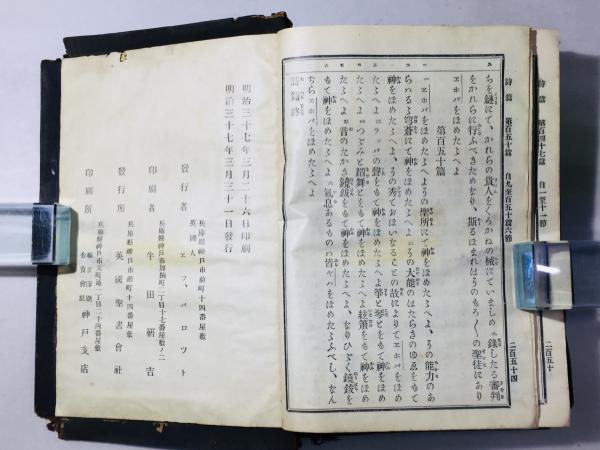 詩篇 第百四十七篇 自一至十一節
二百五十
詩篇 第百五十篇 自九至百五十篇六節
二百五十四
ちを鏈にて、かれらの貴人をくろかねの械にていましめ 九 錄したる審判
をかれらに行ふべきためなり、斯るほまれはそのもろもろの聖徒にあり
ヱホバをほめたたへよ
第百五十篇
一 ヱホバをほめたたへよ その聖所にて神をほめたたへよ、その能力のあ
らはるる穹蒼にて神をほめたたへよ 二 その大能のはたらきのゆゑをもて
神をほめたたへよ、その秀ておほいなることの故によりてヱホバをほめ
たたへよ 三 ラッパの聲をもて神をほめたたへよ 箏と琴とをもて神をほめ
たたへよ 四 つづみと蹈舞とをもて神をほめたたへよ 絃簫をもて神をほめ
たたへよ 五 音のたかき鐃鈸をもて神をほめたたへよ、なりひびく鐃鈸を
もて神をほめたたへよ 六 氣息あるものは皆ヤハをほめたたふべし、なん
ぢらヱホバをほめたたへよ
詩篇終
明治三十七年三月二十六日印刷
明治三十七年三月三十一日發行
兵庫縣神戸市前町十四番屋敷
英國人
發行者 エフ、パロツト
兵庫縣神戸市加納町二丁目七番屋敷ノ二
印刷者 牛田研吉
兵庫縣神戸市前町十四番屋敷
發行所 英國聖書會社
兵庫縣神戸市元町通一丁目二十四番屋敷
印刷所 福音印刷合資會社 神戸支店